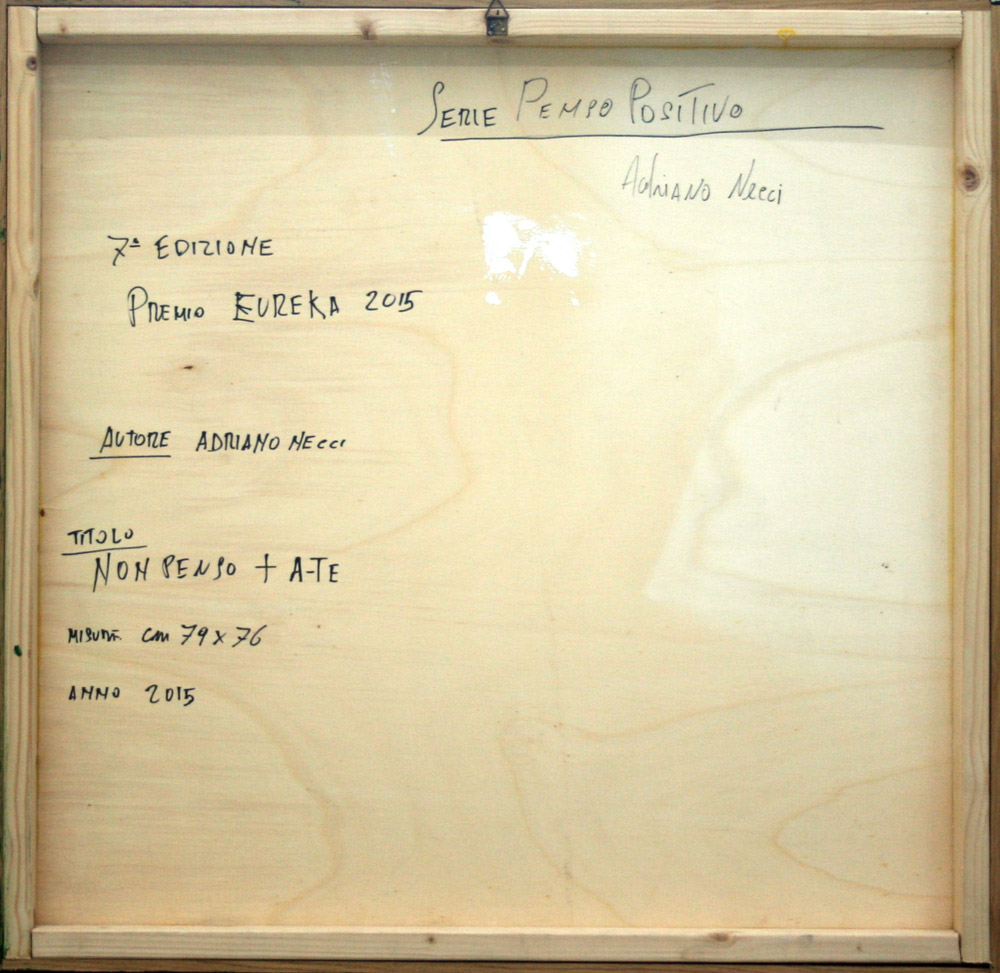 SERIE PENSO POSITIVO
Adriano Necci
7ª EDIZIONE
PREMIO EUREKA 2015
AUTORE ADRIANO NECCI
TITOLO
NON PENSO + A-TE
MISURE cm 79 x 76
ANNO 2015